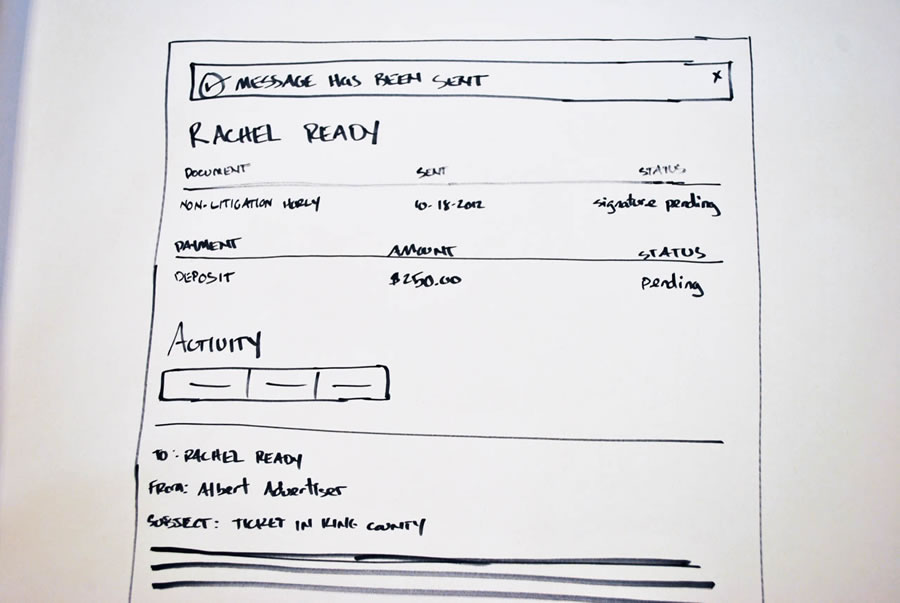 MESSAGE HAS BEEN SENT x
RACHEL READY
DOCUMENT SENT STATUS
NON-LITIGATION HORLY 10-18-2012 signature pending
PAYMENT AMOUNT STATUS
DEPOSIT $250.00 pending
ACTIVITY
TO: RACHEL READY
FROM: Albert Advertiser
SUBJECT: TICKET IN KING COUNTY